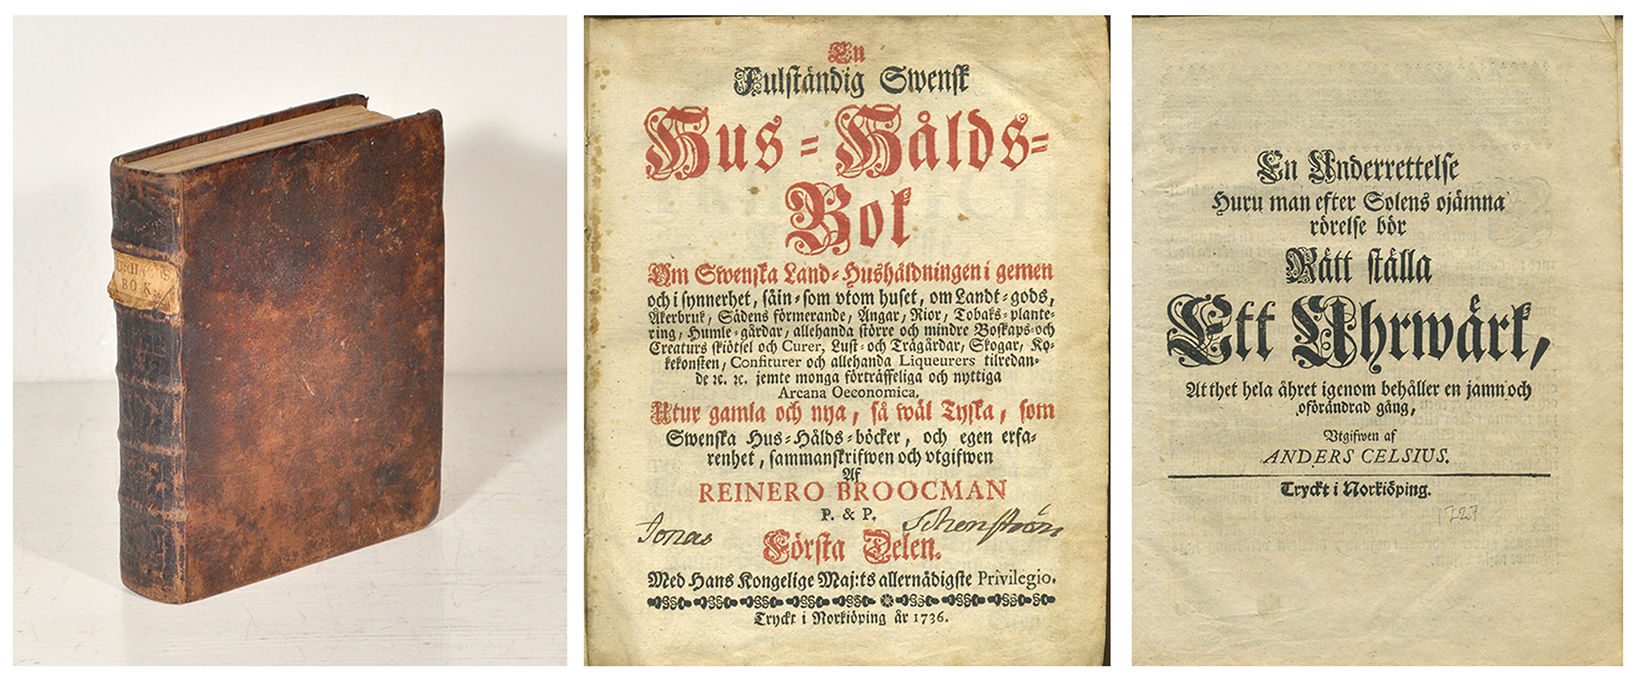 HUSHÅLDS
BOK.
En
Fulständig Swensk
Hus-Hålds-
Bok
Om Swenska Land-Hushåldningen i gemen
och i synnerhet, såin-som vtom huset, om Landt-gods,
Åkerbruk, Sädens förmerande, Ängar, Rior, Tobaks-plante-
ring, Humle-gårdar, allehanda större och mindre Boskaps-och
Creaturs skiötsel och Curer, Lust- och Trägårdar, Skogar, Ko-
kekonsten, Confiturer och allehanda Liqueurers tilredan-
de ꝛc. ꝛc. jemte monga förträffeliga och nyttiga
Arcana Oeconomica,
Utur gamla och nya, så wäl Tyska, som
Swenska Hus-Hålds-böcker, och egen erfa-
renhet, sammanskrifwen och vtgifwen
Af
REINERO BROOCMAN
P. & P.
Jonas Schenström
Första Delen.
Med Hans Kongelige Maj:ts allernådigste Privilegio.
Tryckt i Norkiöping år 1736.
En Underrettelse
Huru man efter Solens ojämna
rörelse bör
Rätt ställa
Ett Uhrwärk,
At thet hela åhret igenom behåller en jamn och
oförändrad gång,
Vtgifwen af
ANDERS CELSIUS.
Tryckt i Norkiöping.
1727